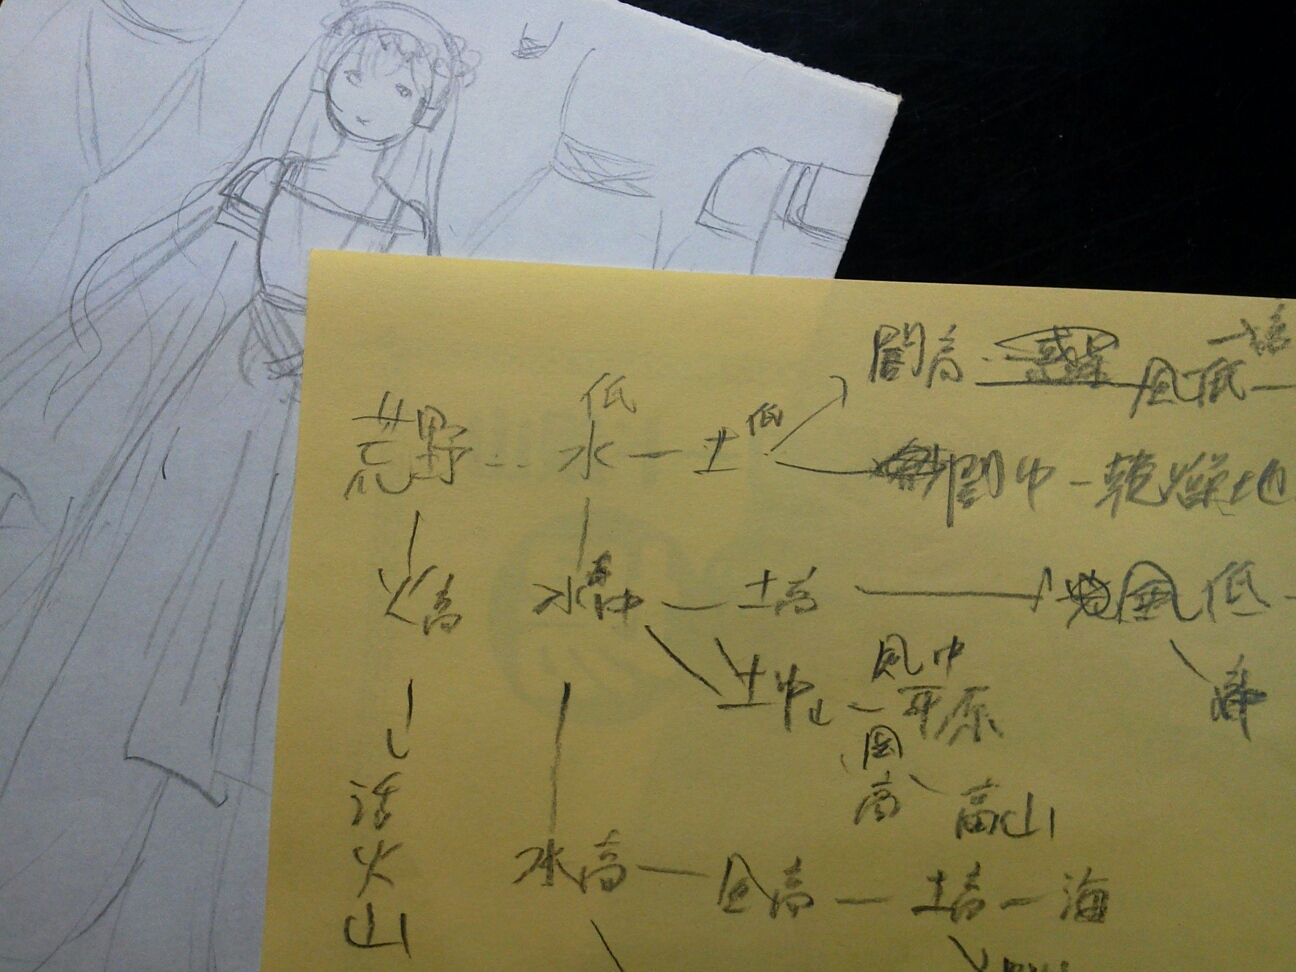 低
荒野 水 — 土 低
闇高 風低
闇中 — 乾燥地
火高 水中 — 土高 風低
土中 風中 平原
風高 高山
活火山
水高 — 風高 — 土高 — 海